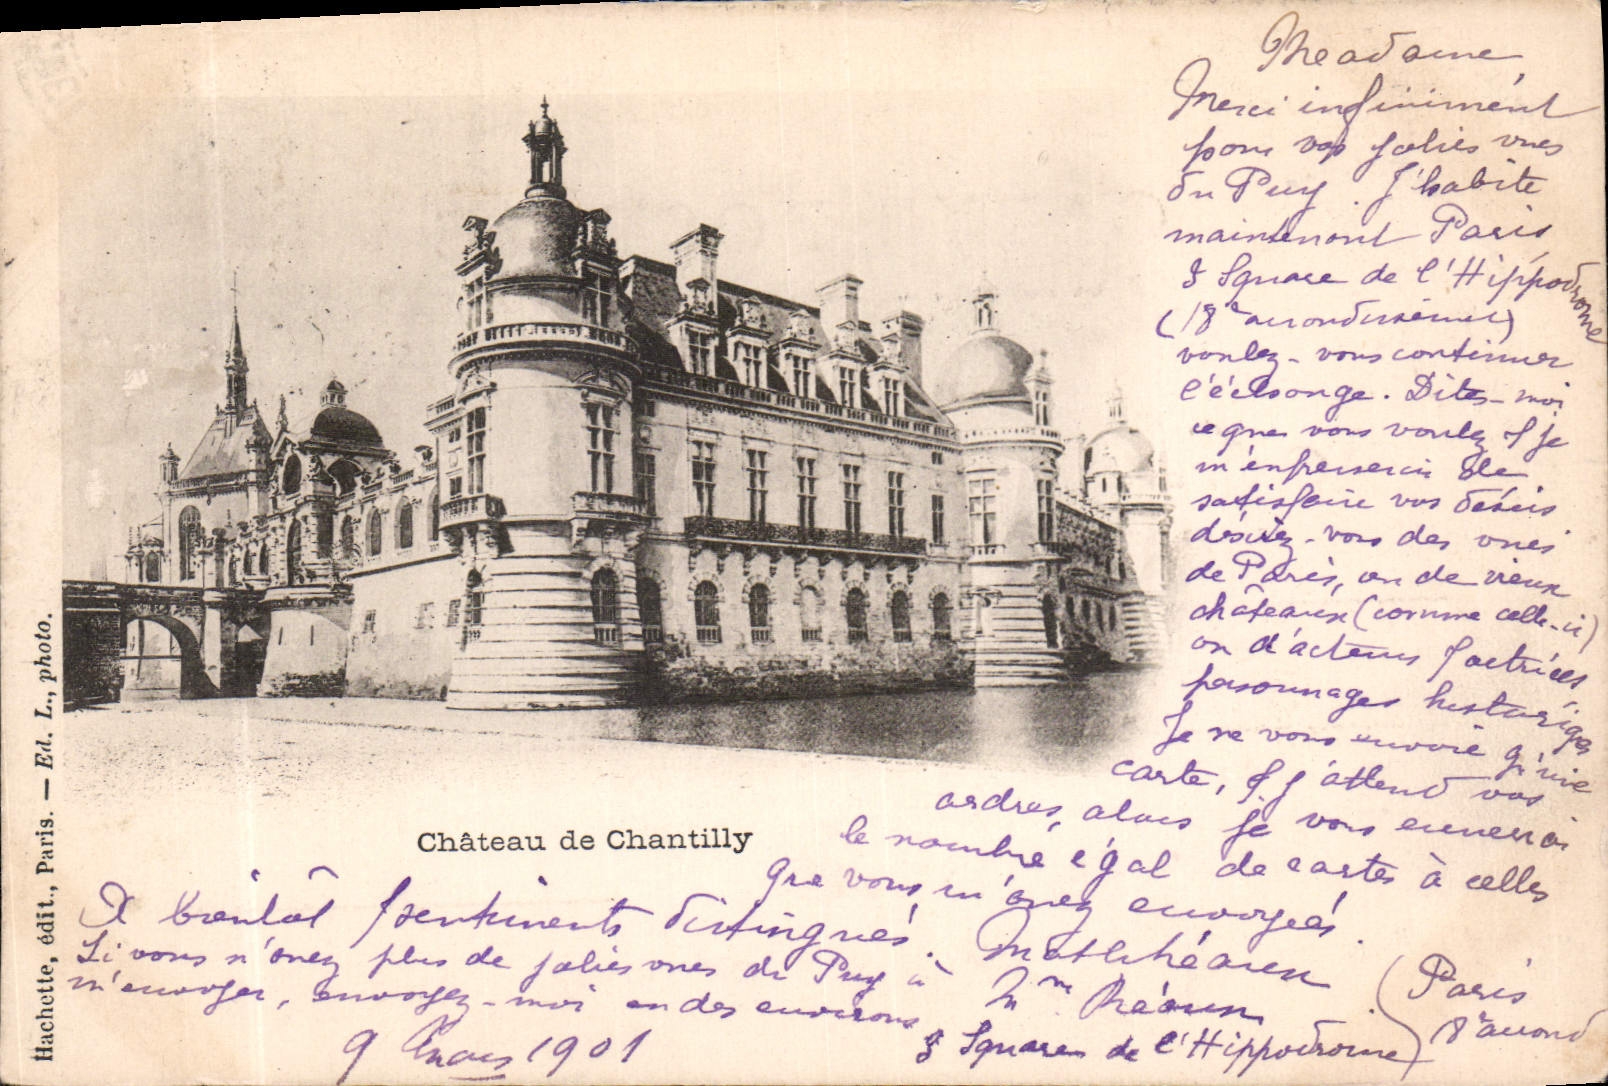 Madame
Merci infiniment
pour vos jolies vues
du Puy. J'habite
maintenant Paris
Square de l'Hippodrome
(18e arrondissement)
voulez-vous continuer
l'échange. Dites-moi
ce que vous voulez & je
m'empresserai de
satisfaire vos désirs
désirez-vous des vues
de Paris, ou de vieux
châteaux (comme celle-ci)
ou d'acteurs & actrices
personnages historiques
Je ne vous envoie qu'une
carte, & j'attend vos
ordres, alors je vous enverrai
le nombre égal de cartes à celles
que vous m'avez envoyées.
A bientôt & sentiments distingués.
Si vous n'avez plus de jolies vues du Puy à
m'envoyer, envoyez-moi en des environs
9 Mars 1901
Mme
Square de l'Hippodrome
(Paris
18e arrond
Château de Chantilly
Hachette, édit., Paris. — Ed. L., photo.